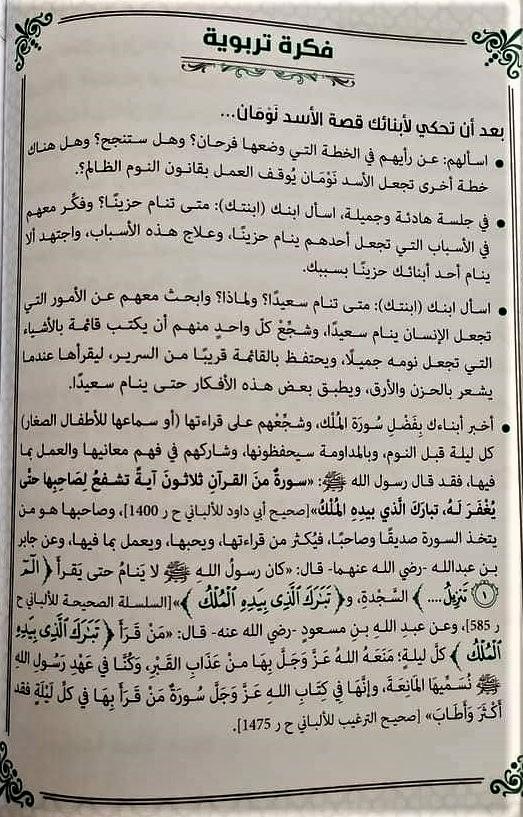 فكرة تربوية
بعد أن تحكي لأبنائك قصة الأسد نَوْمَان...
• اسألهم: عن رأيهم في الخطة التي وضعها فرحان؟ وهل ستنجح؟ وهل هناك
خطة أخرى تجعل الأسد نَوْمَان يُوقف العمل بقانون النوم الظالم؟.
• في جلسة هادئة وجميلة، اسأل ابنك (ابنتك): متى تنام حزينًا؟ وفكِّر معهم
في الأسباب التي تجعل أحدهم ينام حزينًا، وعلاج هذه الأسباب، واجتهد ألا
ينام أحد أبنائك حزينًا بسببك.
• اسأل ابنك (ابنتك): متى تنام سعيدًا؟ ولماذا؟ وابحث معهم عن الأمور التي
تجعل الإنسان ينام سعيدًا، وشجِّعْ كلّ واحدٍ منهم أن يكتب قائمة بالأشياء
التي تجعل نومه جميلًا، ويحتفظ بالقائمة قريبًا من السرير، ليقرأها عندما
يشعر بالحزن والأرق، ويطبق بعض هذه الأفكار حتى ينام سعيدًا.
• أخبر أبناءك بِفَضْلِ سُورَة المُلْك، وشجِّعْهم على قراءتها (أو سماعها للأطفال الصغار)
كل ليلة قبل النوم، وبالمداومة سيحفظونها، وشاركهم في فهم معانيها والعمل بما
فيها، فقد قال رسول الله ﷺ: «سورةٌ منَ القرآنِ ثلاثونَ آيةً تشفعُ لِصَاحِبِها حتَّى
يُغْفَرَ لَهُ، تبارَكَ الَّذي بيدِهِ المُلْكُ»[صحيح أبي داود للألباني ح ر 1400]، وصاحبها هو من
يتخذ السورة صديقًا وصاحبًا، فيُكثر من قراءتها، ويحبها، ويعمل بما فيها، وعن جابر
بن عبدالله -رضي الله عنهما- قال: «كان رسولُ اللهِ ﷺ لا يَنامُ حتى يَقرأَ ﴿ الٓمٓ
١ تَنزِيلُ.... ﴾ السَّجْدة، و﴿ تَبَٰرَكَ ٱلَّذِى بِيَدِهِ ٱلْمُلْكُ ﴾»[السلسلة الصحيحة للألباني ح
ر 585]، وعن عبد اللهِ بنِ مسعودٍ -رضي الله عنه- قال: «مَنْ قَرَأَ ﴿ تَبَٰرَكَ ٱلَّذِى بِيَدِهِ
ٱلْمُلْكُ ﴾ كلّ ليلةٍ؛ مَنَعَهُ اللهُ عَزَّ وَجَلَّ بِهَا منْ عَذَابِ القَبْرِ، وَكُنَّا فِي عَهْدِ رَسُولِ اللهِ
ﷺ نُسَمِّيهَا المَانِعَةَ، وإنَّهَا فِي كِتَابِ اللهِ عَزَّ وَجَلَّ سُورَةٌ مَنْ قَرَأَ بِهَا فِي كلّ لَيْلَةٍ فقد
أَكْثَرَ وَأَطَابَ» [صحيح الترغيب للألباني ح ر 1475].